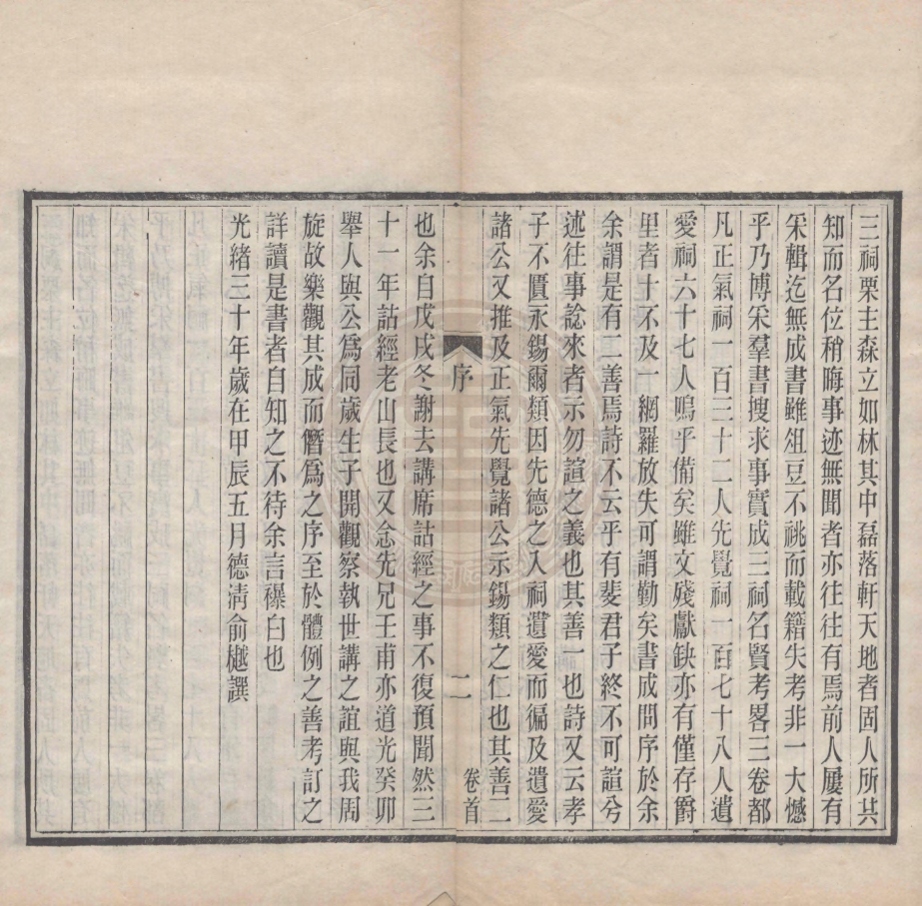 三祠栗主森立如林其中磊落軒天地者固人所共
知而名位稍晦事迹無聞者亦往往有焉前人屢有
采輯迄無成書雖俎豆不祧而載籍失考非一大憾
乎乃博采羣書搜求事實成三祠名賢考畧三卷都
凡正氣祠一百三十二人先覺祠一百七十八人遺
愛祠六十七人嗚乎備矣雖文殘獻缺亦有僅存爵
里者十不及一網羅放失可謂勤矣書成問序於余
余謂是有二善焉詩不云乎有斐君子終不可諠兮
述往事諗來者示勿諠之義也其善一也詩又云孝
子不匱永錫爾類因先德之入祠遺愛而徧及遺愛
諸公又推及正氣先覺諸公示錫類之仁也其善二
序
二
卷首
也余自戊戌冬謝去講席詁經之事不復預聞然三
十一年詁經老山長也又念先兄壬甫亦道光癸卯
舉人與公爲同歲生子開觀察執世講之誼與我周
旋故樂觀其成而僭爲之序至於體例之善考訂之
詳讀是書者自知之不待余言䅿白也
光緒三十年歲在甲辰五月德清俞樾譔